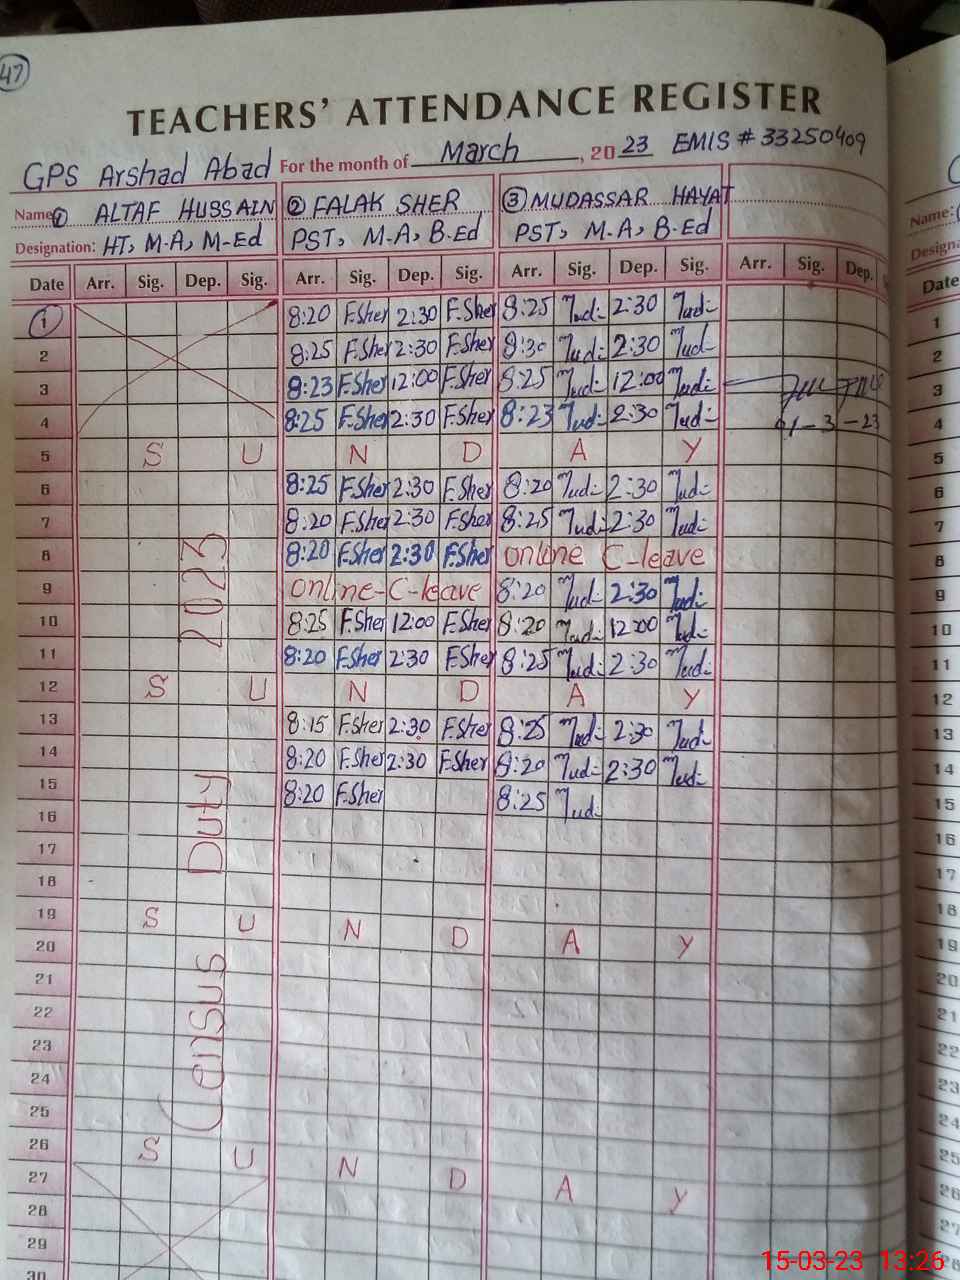 47
TEACHERS' ATTENDANCE REGISTER
GPS Arshad Abad For the month of March, 2023 EMIS # 33250409
Name: ① ALTAF HUSSAIN ② FALAK SHER ③ MUDASSAR HAYAT
Designation: HT, M-A, M-Ed PST, M-A, B-Ed PST, M.A, B-Ed
Date Arr. Sig. Dep. Sig. Arr. Sig. Dep. Sig. Arr. Sig. Dep. Sig. Arr. Sig. Dep.
1 8:20 F.Sher 2:30 F.Sher 8:25 Mud: 2:30 Mud:
2 8:25 F.Sher 2:30 F.Sher 8:30 Mud: 2:30 Mud:
3 8:23 F.Sher 12:00 F.Sher 8:25 Mud: 12:00 Mud:
4 8:25 F.Sher 2:30 F.Sher 8:23 Mud: 2:30 Mud: 01-3-23
5 S U N D A Y
6 8:25 F.Sher 2:30 F.Sher 8:20 Mud: 2:30 Mud:
7 8:20 F.Sher 2:30 F.Sher 8:25 Mud: 2:30 Mud:
8 8:20 F.Sher 2:30 F.Sher online C-leave
9 online-C-leave 8:20 Mud: 2:30 Mud:
10 8:25 F.Sher 12:00 F.Sher 8:20 Mud: 12:00 Mud:
11 8:20 F.Sher 2:30 F.Sher 8:25 Mud: 2:30 Mud:
12 S U N D A Y
13 8:15 F.Sher 2:30 F.Sher 8:25 Mud: 2:30 Mud:
14 8:20 F.Sher 2:30 F.Sher 8:20 Mud: 2:30 Mud:
15 8:20 F.Sher 8:25 Mud:
16
17
18
19 S U N D A Y
20
21
22
23
24
25
26 S U N D A Y
27
28
29
30
Census Duty 2023
Name:
Date
1
2
3
4
5
6
7
8
9
10
11
12
13
14
15
16
17
18
19
20
21
22
23
24
25
26
27
15-03-23 13:26